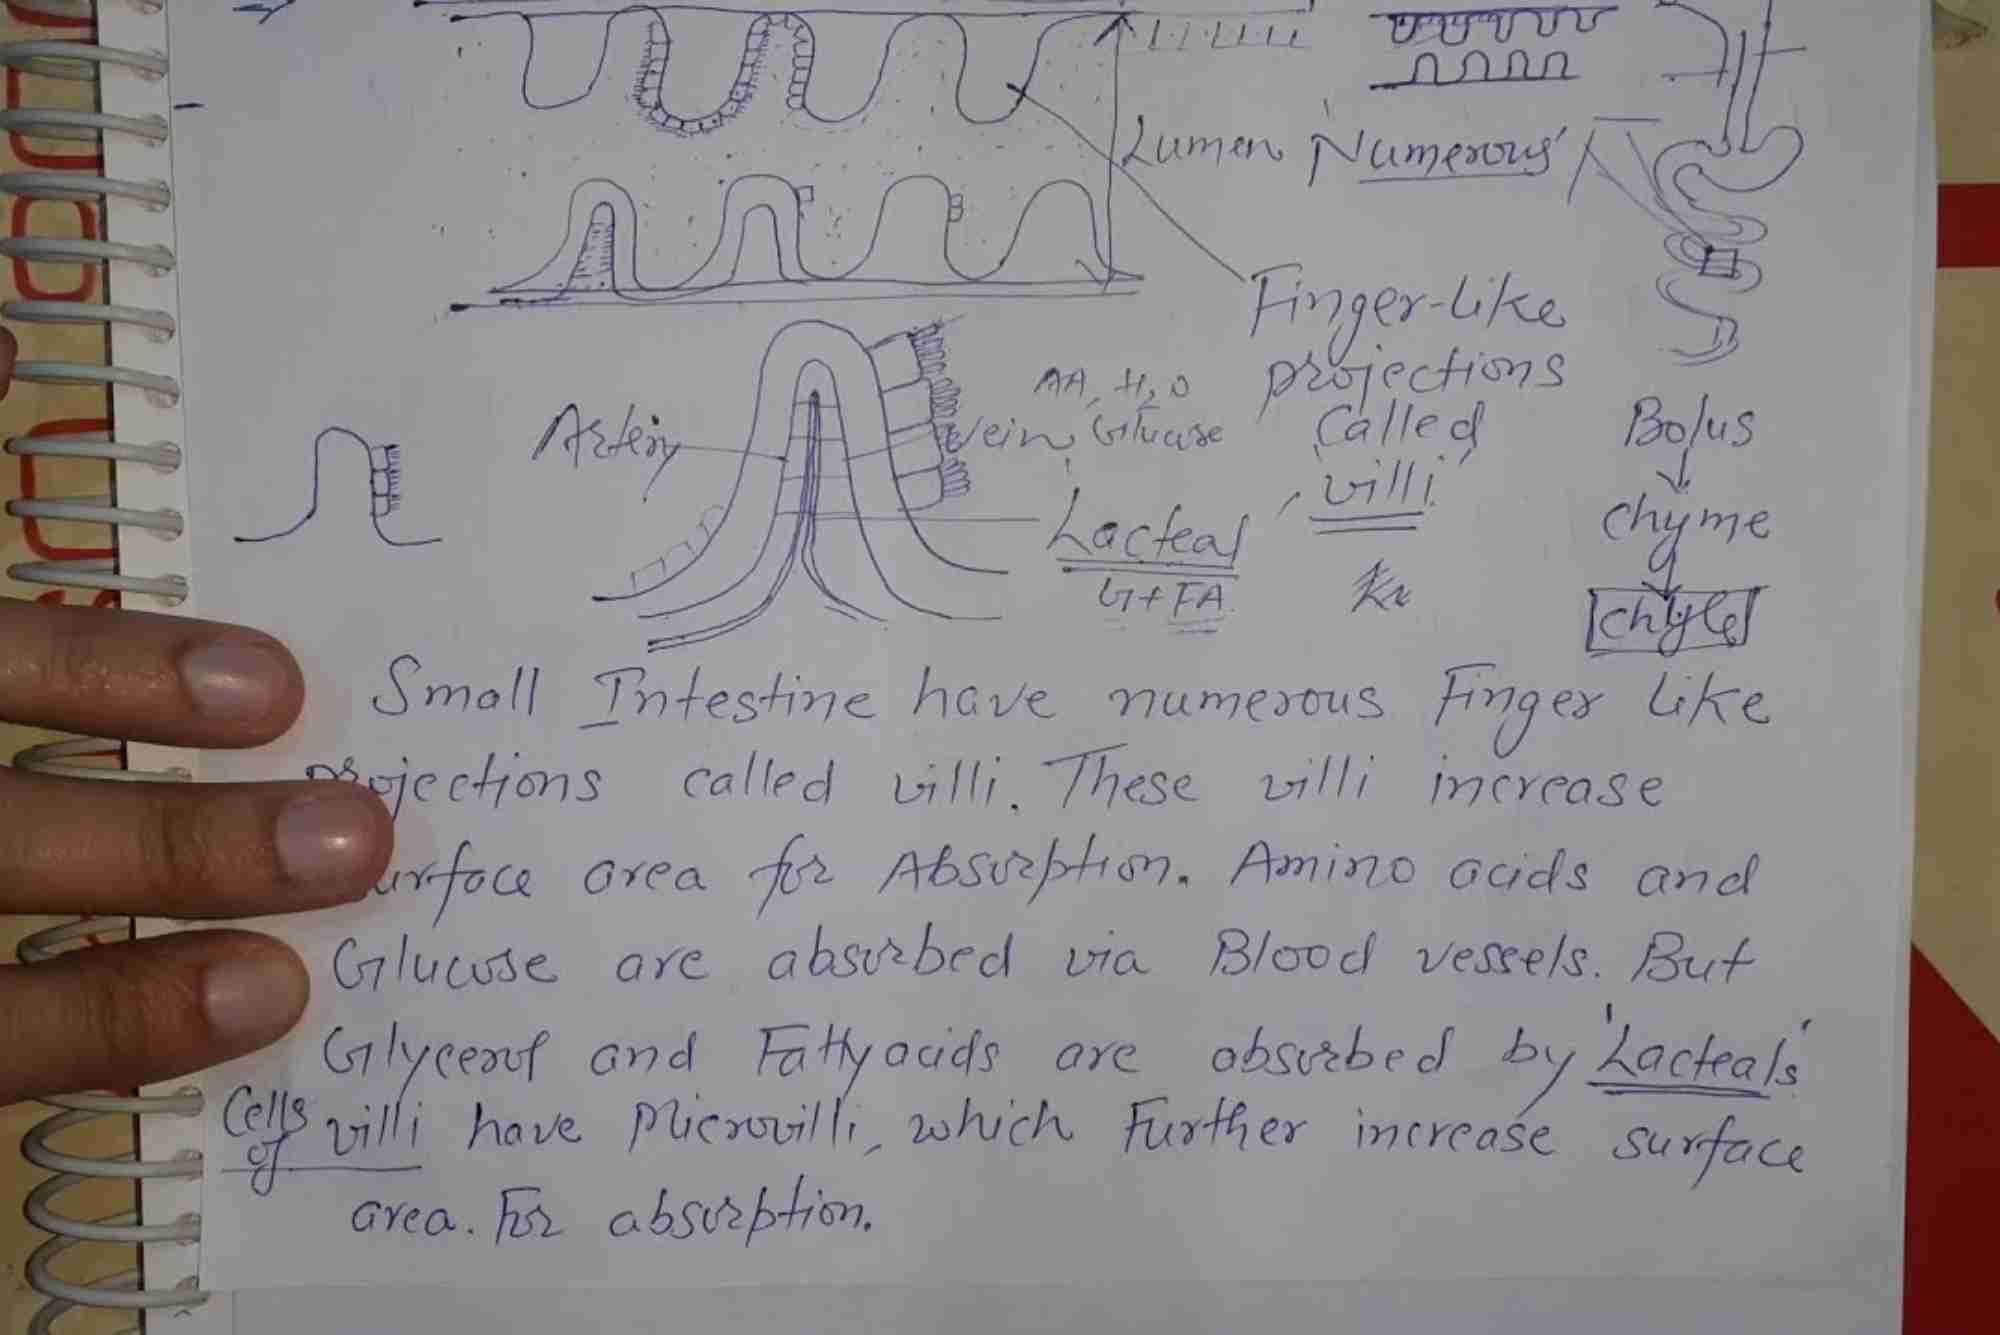 Lumen Numerous'
Finger-like
projections
called
'villi'
Artery
Vein
AA, H2O
Glucose
Lacteal
G+FA
Bolus
chyme
chyle
Small Intestine have numerous Finger like
projections called villi. These villi increase
urface area for Absorption. Amino acids and
Glucose are absorbed via Blood vessels. But
Glycerol and Fatty acids are absorbed by 'Lacteals'
Cells of villi have Microvilli, which Further increase surface
area. For absorption.